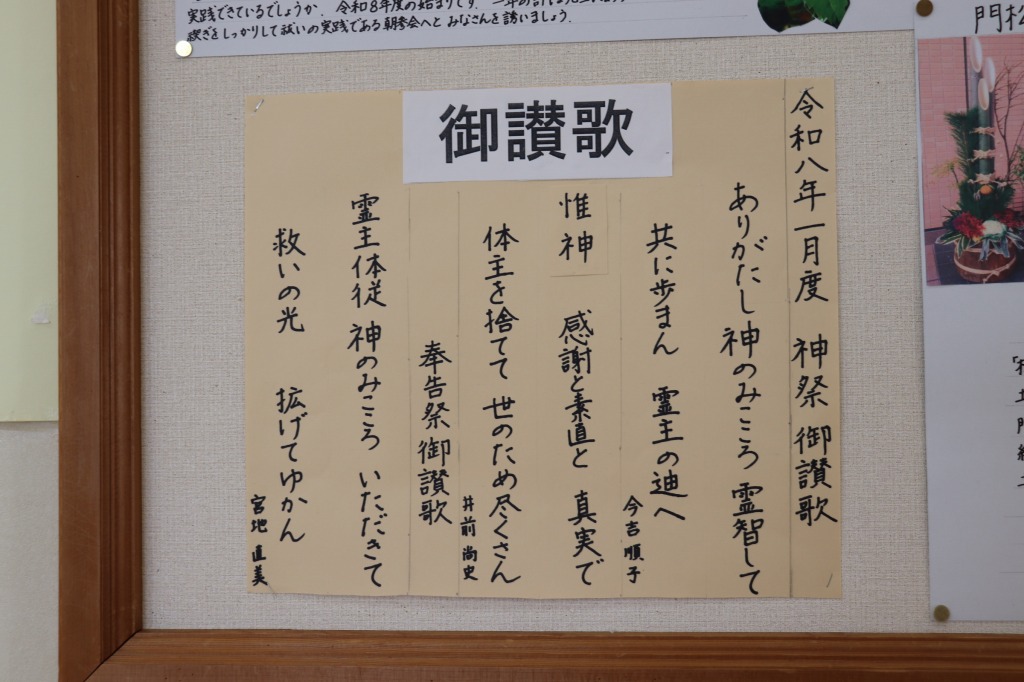 実践できているでしょうか。令和8年度の始まりです。
禊ぎをしっかりして祓いの実践である朝参会へと みなさんを誘いましょう。
御讃歌
令和八年一月度 神祭 御讃歌
ありがたし 神のみこころ 霊智して
共に歩まん 霊主の迪へ
今吉順子
惟神 感謝と素直と 真実で
体主を捨てて 世のため尽くさん
井前尚史
奉告祭御讃歌
霊主体従 神のみこころ いただきて
救いの光 拡げてゆかん
宮地直美
門松